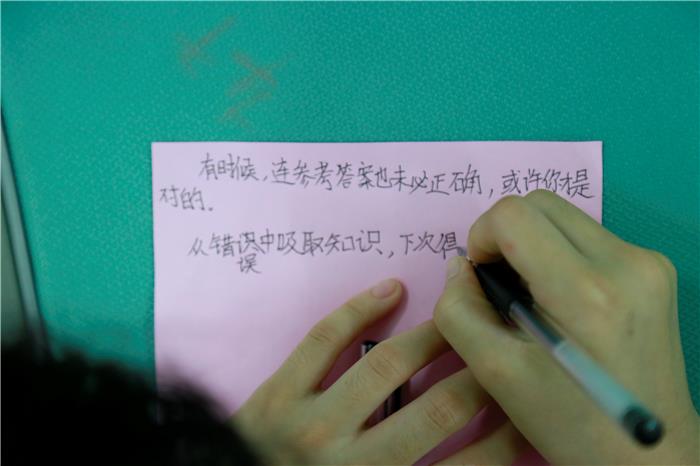 有时候，连参考答案也未必正确，或许你才是
对的.
从错识中吸取知识，下次
误